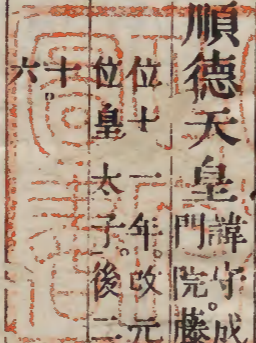 順德天皇
諱守成
門院。藤
位十一年。改元
位皇太子。後二
十。
六